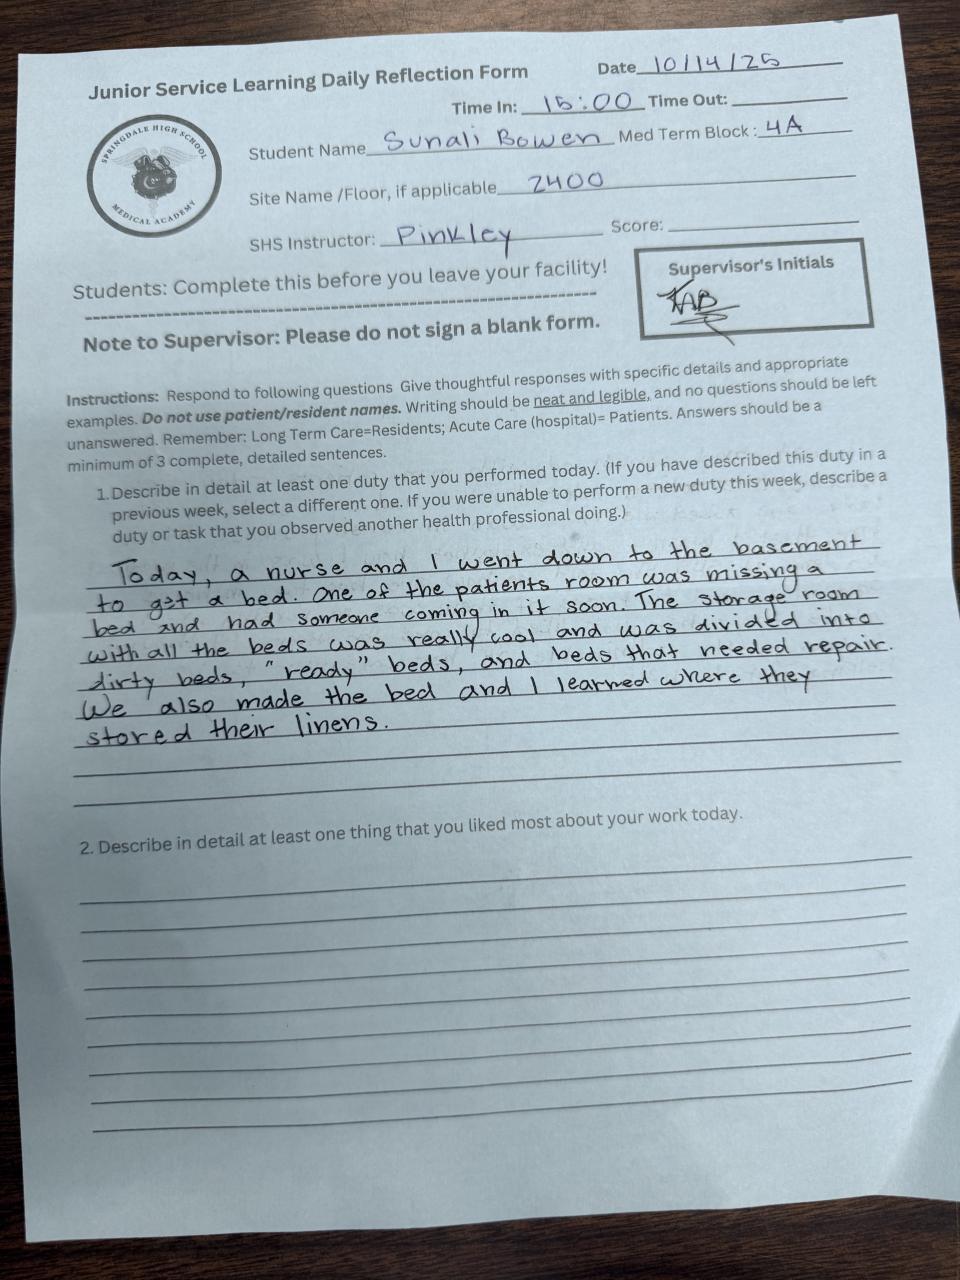 Junior Service Learning Daily Reflection Form
Date 10/14/25
Time In: 15:00 Time Out:
SPRINGDALE HIGH SCHOOL
MEDICAL ACADEMY
Student Name Sunali Bowen Med Term Block : 4A
Site Name /Floor, if applicable 2400
SHS Instructor: Pinkley Score:
Students: Complete this before you leave your facility!
Supervisor's Initials
KAB
Note to Supervisor: Please do not sign a blank form.
Instructions: Respond to following questions Give thoughtful responses with specific details and appropriate
examples. Do not use patient/resident names. Writing should be neat and legible, and no questions should be left
unanswered. Remember: Long Term Care=Residents; Acute Care (hospital)= Patients. Answers should be a
minimum of 3 complete, detailed sentences.
1. Describe in detail at least one duty that you performed today. (If you have described this duty in a
previous week, select a different one. If you were unable to perform a new duty this week, describe a
duty or task that you observed another health professional doing.)
Today, a nurse and I went down to the basement
to get a bed. One of the patients room was missing a
bed and had someone coming in it soon. The storage room
with all the beds was really cool and was divided into
dirty beds, "ready" beds, and beds that needed repair.
We also made the bed and I learned where they
stored their linens.
2. Describe in detail at least one thing that you liked most about your work today.